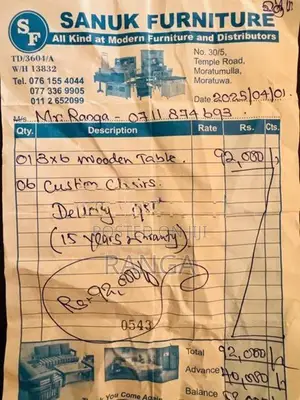 SANUK FURNITURE
SF
All Kind at Modern Furniture and Distributors
TD/3604/A
W/H 13832
Tel. 076 155 4044
077 336 9905
011 2 652099
No. 30/5,
Temple Road,
Moratumulla,
Moratuwa.
Date 2025/04/01.
M/s Mr. Ranga - 0711 874693
Qty. Description Rate Rs. Cts.
01 3x6 Wooden Table. 92,000/-
06 Custion Chairs.
Delivery
(15 years warranty)
RANGA
Rs. 92,000/-
0543
Total 92,000/-
Advance 40,000/-
Balance
Thank You Come Again